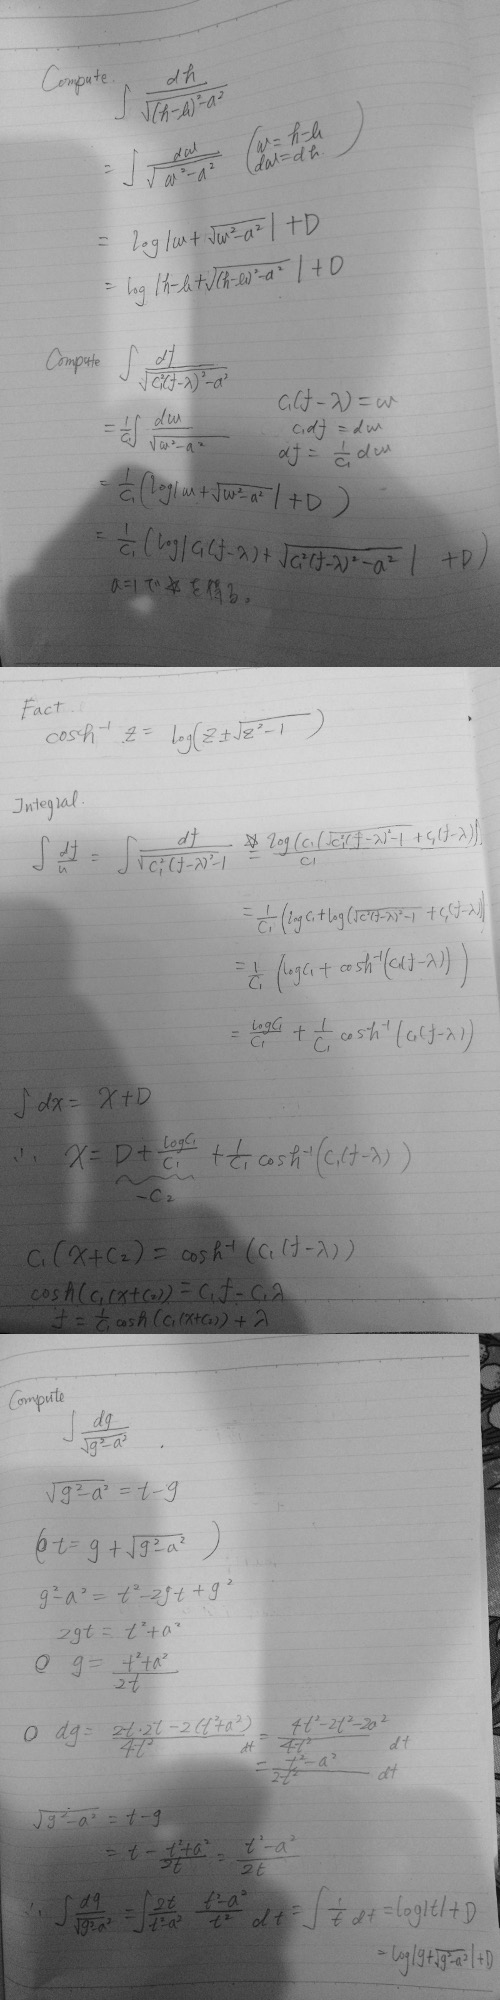 Compute.
∫ dh/√((h-k)²-a²)
= ∫ dw/√(w²-a²) (w = h-k
dw = dh)
= log|w+√(w²-a²)| + D
= log|h-k+√((h-k)²-a²)| + D
Compute ∫ df/√(c₁²(f-λ)²-a²)
c₁(f-λ) = w
= 1/c₁ ∫ dw/√(w²-a²)
c₁df = dw
df = 1/c₁ dw
= 1/c₁ (log|w+√(w²-a²)| + D)
= 1/c₁ (log|c₁(f-λ)+√(c₁²(f-λ)²-a²)| + D)
a=1で☆を得る。
Fact.
cosh⁻¹ z = log(z±√(z²-1))
Integral.
∫ df/u = ∫ df/√(c₁²(f-λ)²-1) ☆= log(c₁(√(c₁²(f-λ)²-1) + c₁(f-λ)))/c₁
= 1/c₁ (log c₁ + log(√(c₁²(f-λ)²-1) + c₁(f-λ)))
= 1/c₁ (log c₁ + cosh⁻¹(c₁(f-λ)))
= log c₁/c₁ + 1/c₁ cosh⁻¹(c₁(f-λ))
∫ dx = x+D
∴ x = D + log c₁/c₁ + 1/c₁ cosh⁻¹(c₁(f-λ))
-c₂
c₁(x+c₂) = cosh⁻¹(c₁(f-λ))
cosh(c₁(x+c₂)) = c₁f - c₁λ
f = 1/c₁ cosh(c₁(x+c₂)) + λ
Compute
∫ dg/√(g²-a²).
√(g²-a²) = t-g
(t = g+√(g²-a²))
g²-a² = t²-2gt+g²
2gt = t²+a²
○ g = (t²+a²)/2t
○ dg = (2t·2t-2(t²+a²))/4t² dt = (4t²-2t²-2a²)/4t² dt
= (t²-a²)/2t² dt
√(g²-a²) = t-g
= t - (t²+a²)/2t = (t²-a²)/2t
∴ ∫ dg/√(g²-a²) = ∫ 2t/(t²-a²) (t²-a²)/t² dt = ∫ 1/t dt = log|t| + D
= log|g+√(g²-a²)| + D